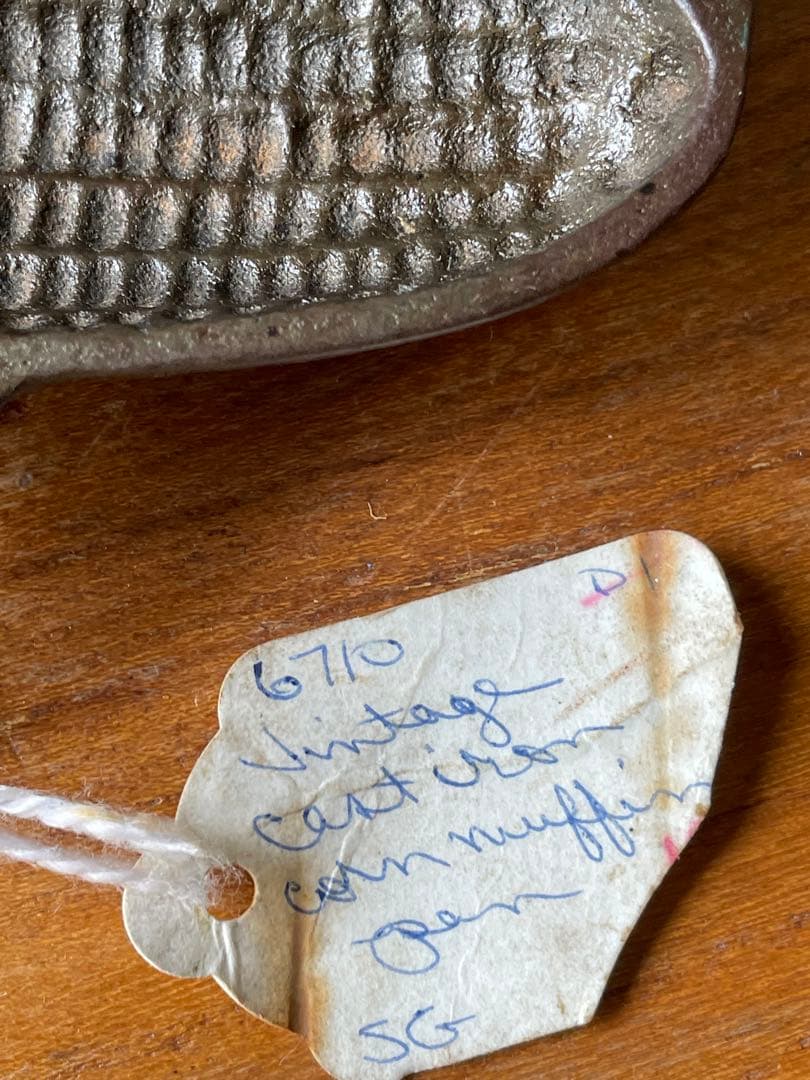 D1
6710
Vintage
cast iron
corn muffin
pan
SG